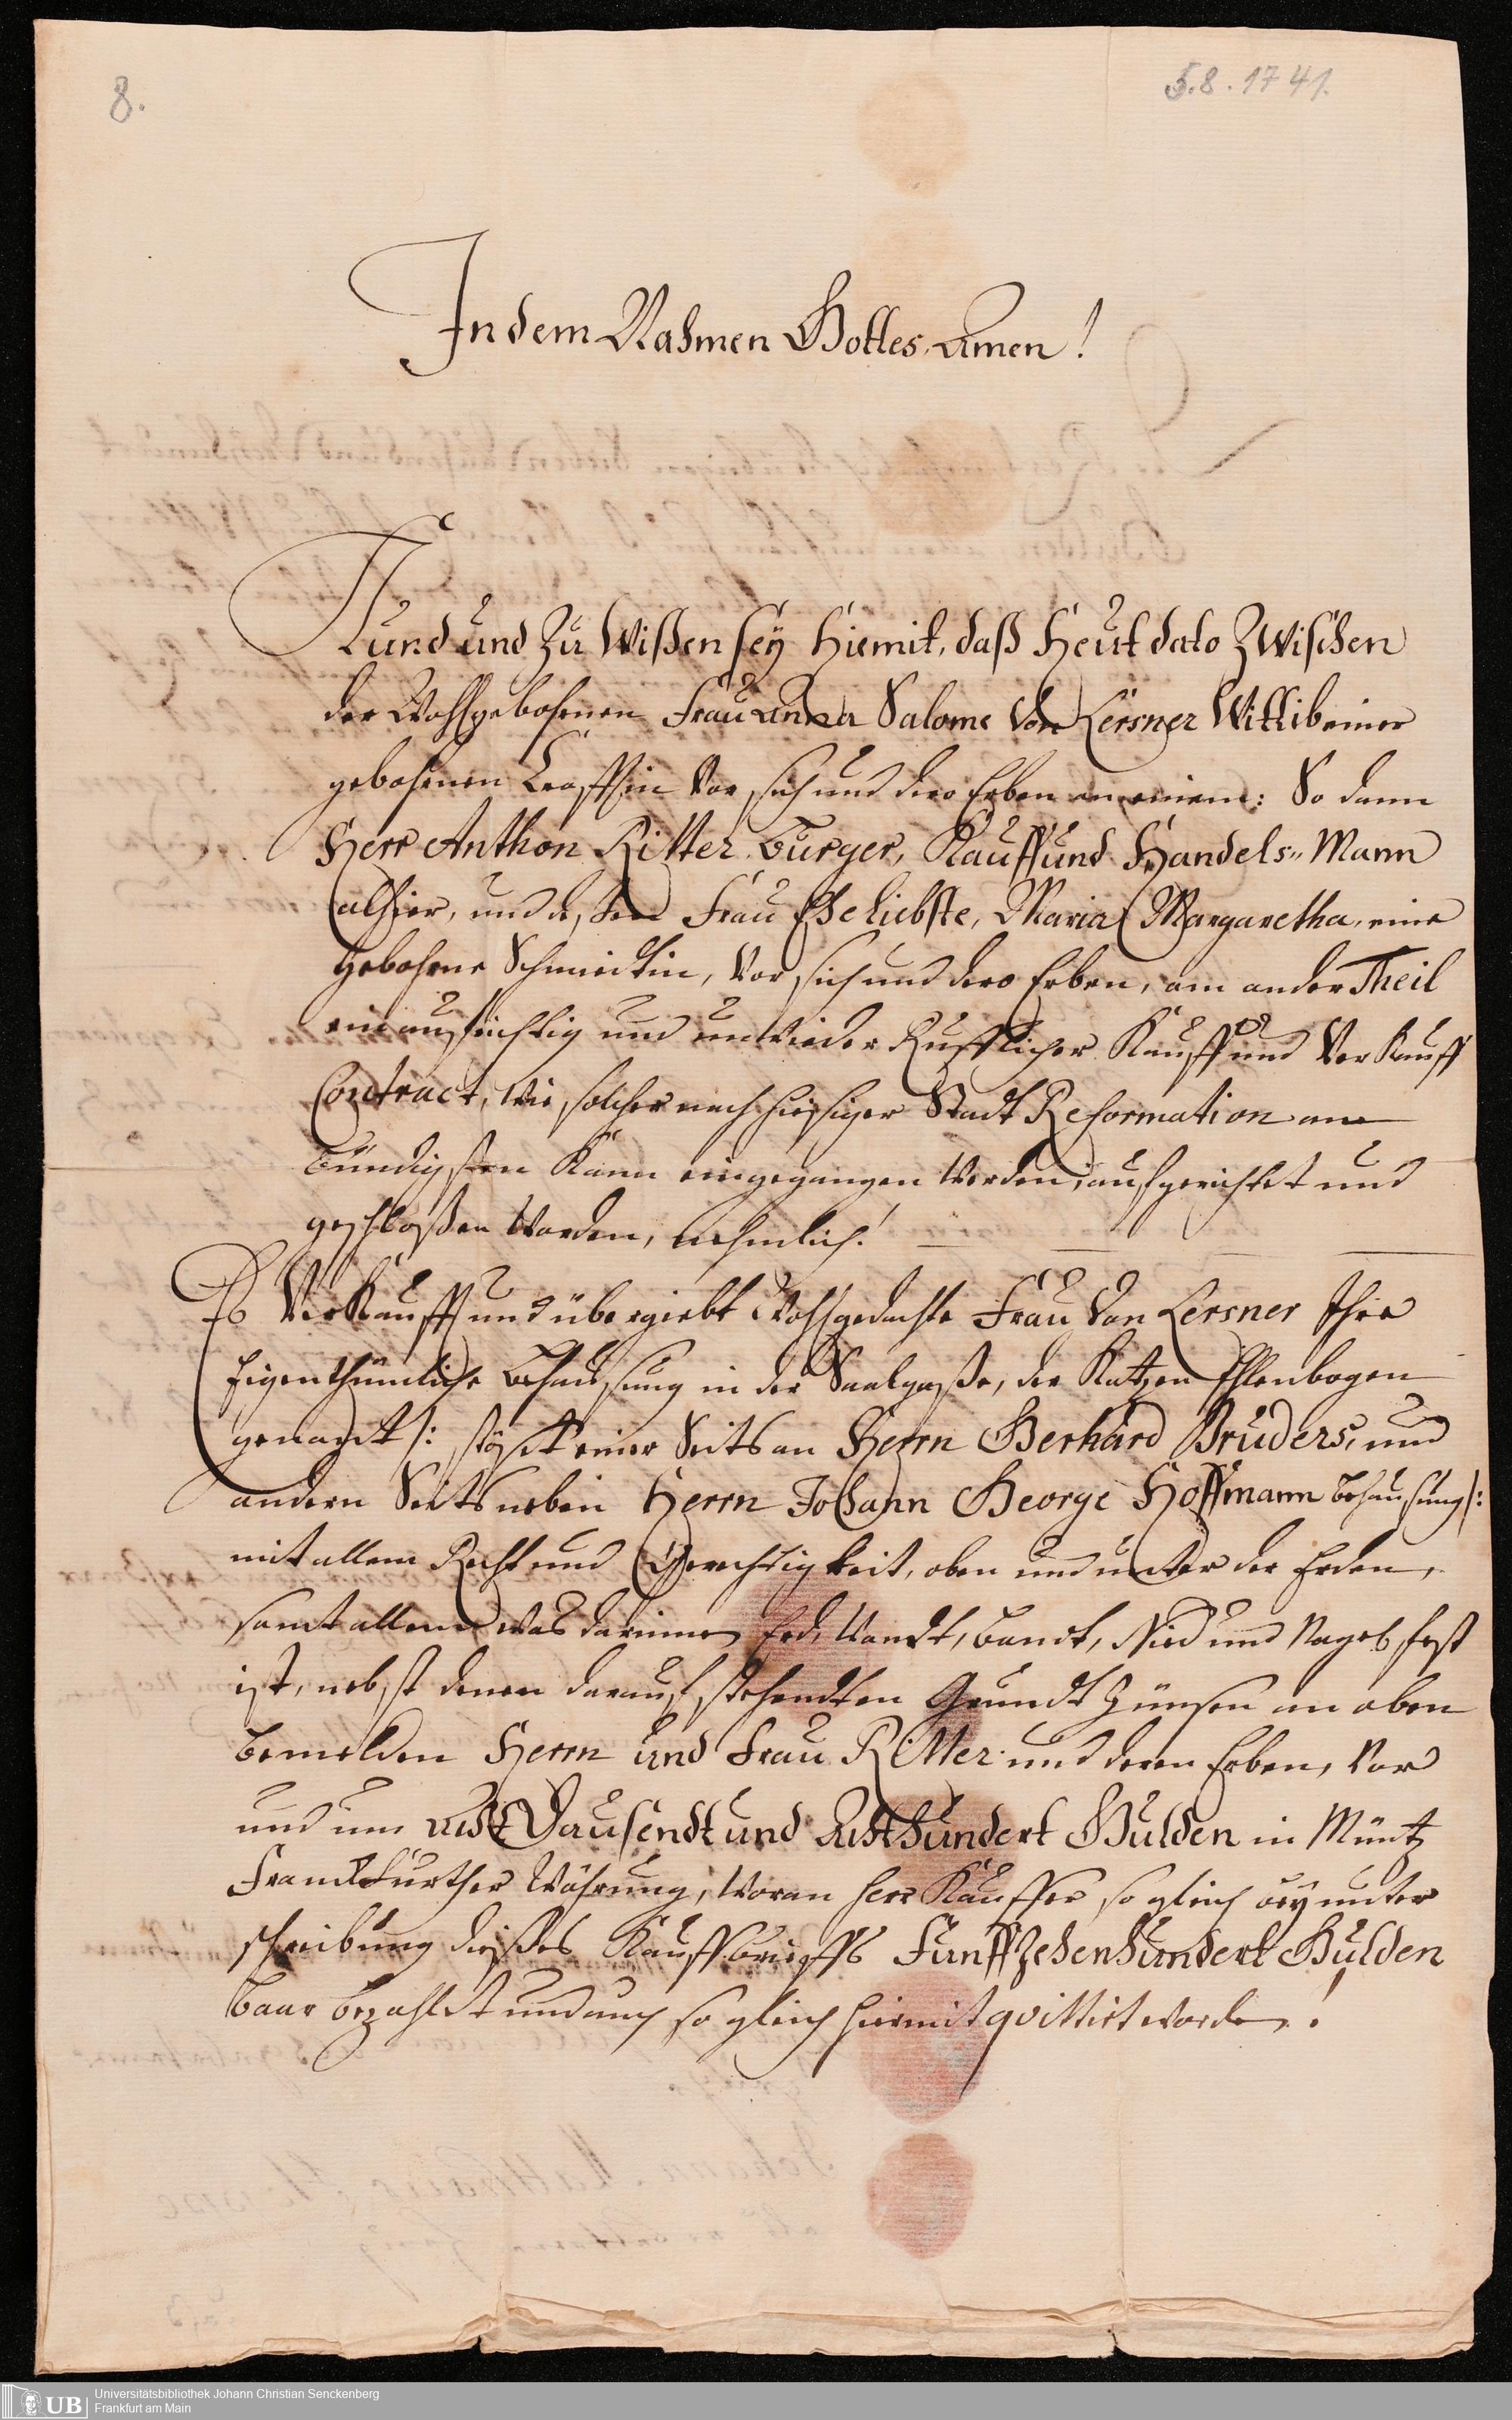 8.
5.8.1741.
In dem Nahmen Gottes, Amen!
Kund und Zu Wißen seÿ hiemit, daß heut dato Zwischen
der Wohlgebohrnen Frau Anna Salome von Lersner Wittib einer
gebohrnen vor sich und dero Erben an einem: So dann
Herr Anthon Ritter Burger, Kauff und Handels„ Mann
alhier, und deßen Frau Eheliebste, Maria Margaretha, eine
gebohrne Schmidtin, vor sich und dero Erben, am ander Theil
ein aufrichtig und unwieder Rufflicher Kauff und Verkauff
Contract, wie solcher nach hiesiger Stadt Reformation am
bündigsten Kann eingegangen werden, aufgerichtet und
geschloßen worden, nehmlich!
Es Verkaufft und übergiebt Wohlgedachte Frau von Lersner Ihre
Eigenthümliche Behaußung in der Saalgaße, der Katzen Ehlenbogen
genandt /: stöst einer Seits an Herrn Gerhard Bruders, und
andern Seits neben Herrn Johann George Hoffmann Behausung :/
mit allem Recht und Gerechtigkeit, oben und unter der Erden,
samt allem was darinnen Erd, Wandt, Bandt, Nied und Nagel fest
ist, nebst denen darauf stehendten Grundt Zünsen an oben
bemelden Herrn und Frau Ritter und deren Erben, vor
und um Acht Dausendt und Achthundert Gulden in Müntz
Franckfurther Währung, woran Herr Kauffer so gleich beÿ unter
schreibung dießes Kauffbrieffs Funffzehenhundert Gulden
baar bezahlt und auch so gleich hiermit qvittirt worden!
Universitätsbibliothek Johann Christian Senckenberg
Frankfurt am Main
UB